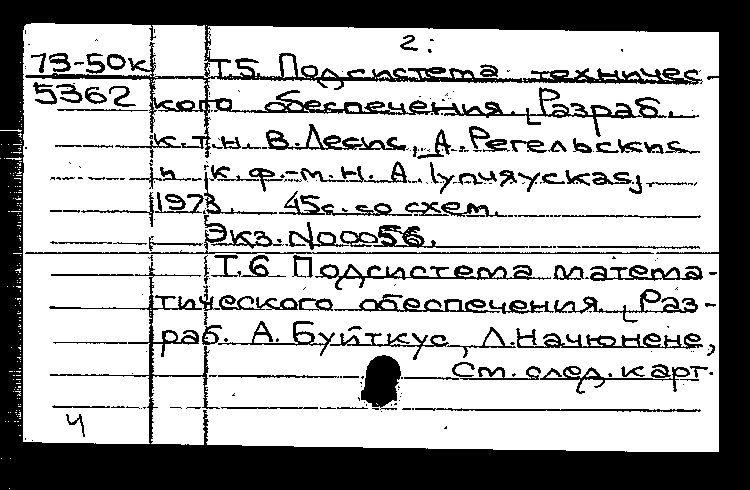 2:
73-50к Т.5. Подсистема техничес-
5362 кого обеспечения. [Разраб.
к.т.н. В.Лесис, А.Регельскис
и к.ф.-м.н. А. 
1973. 45с. со схем.
Экз. №00056.
Т.6 Подсистема матема-
тического обеспечения. [Раз-
раб. А. Буйткус, Л.Начюнене,
См. след. карт.
4